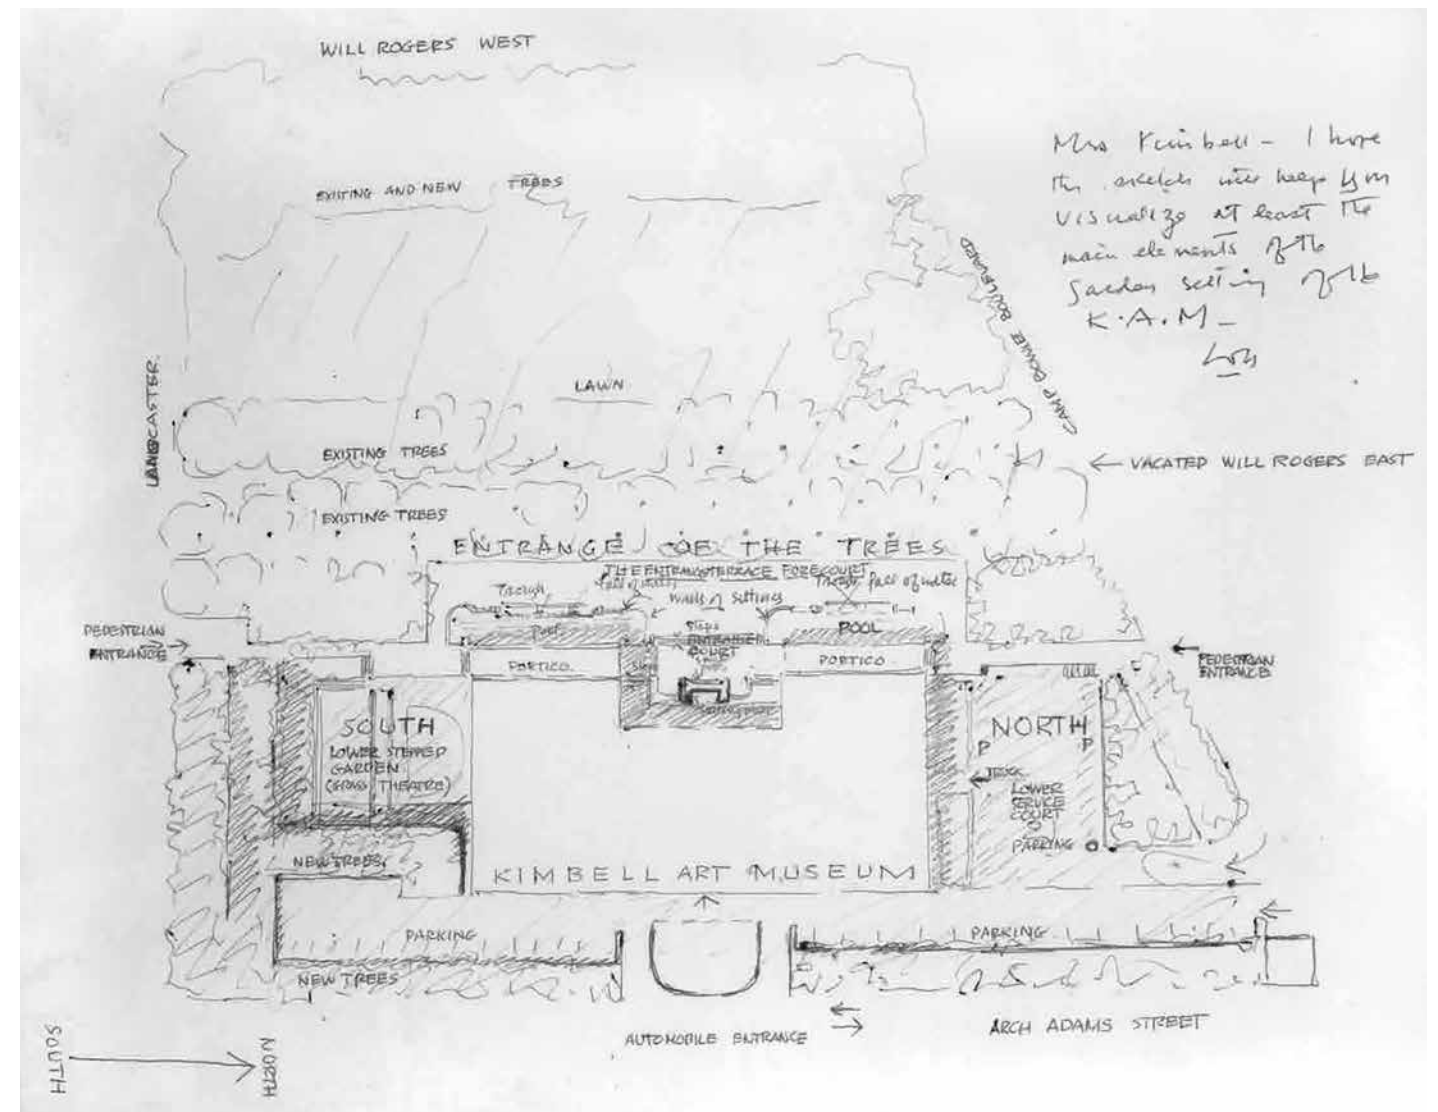 WILL ROGERS WEST
Mrs Kimbell – I hope
this sketch will help you
visualize at least the
main elements of the
garden setting of the
K.A.M –
Lou
EXISTING AND NEW TREES
CAMP BOWIE BOULEVARD
LANCASTER
LAWN
EXISTING TREES
← VACATED WILL ROGERS EAST
EXISTING TREES
ENTRANCE OF THE TREES
THE ENTRANCE TERRACE FORECOURT
Trough
fall of water
walls of sittings
Trough
fall of water
PEDESTRIAN
ENTRANCE
pool
Steps
ENTRANCE
COURT
POOL
PEDESTRIAN
ENTRANCE
PORTICO
PORTICO
SOUTH
LOWER STEPPED
GARDEN
(GRASS THEATRE)
NORTH
P
P
TRUCK
LOWER
SERVICE
COURT
PARKING
NEW TREES
KIMBELL ART MUSEUM
PARKING
PARKING
NEW TREES
AUTOMOBILE ENTRANCE
ARCH ADAMS STREET
SOUTH
NORTH